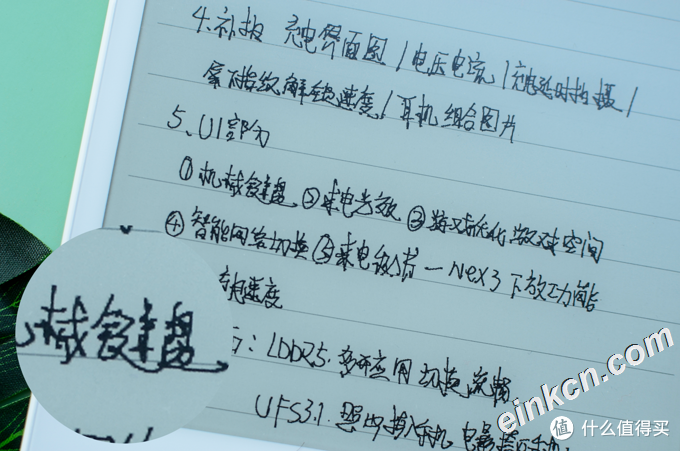 4.补拍 充电界面图/电压电流/充电延时拍摄/
指纹解锁速度/耳机组合图片
5、UI部分
①机械键盘 ②来电光效 ③游戏优化 游戏空间
④智能网络切换 ⑤来电 一Nex3下放功能
充电速度
械键盘
: LDDR5.多开应用切换流畅
UFS3.1.照片 手机 电影
einkcn.com
值 什么值得买